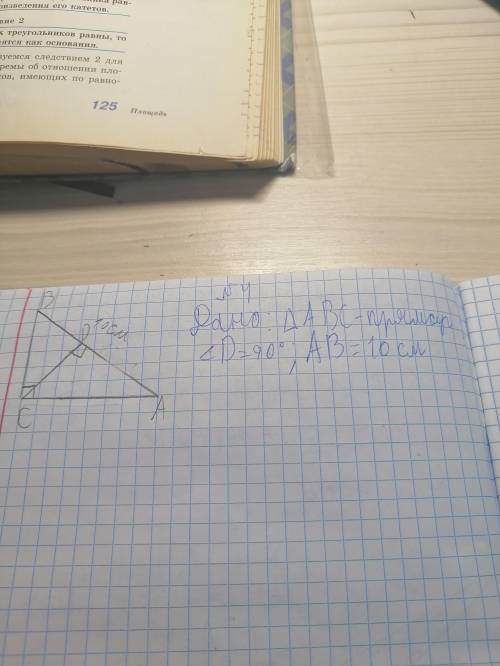 изведения его катетов.
ие 2
х треугольников равны, то
сятся как основания.
уемся следствием 2 для
ремы об отношении пло-
ков, имеющих по равно-
125 Площадь
№ 4
Дано: △ABC-прямоуг
∠D=90°; AB=10 см
B
D
10 см
C
A